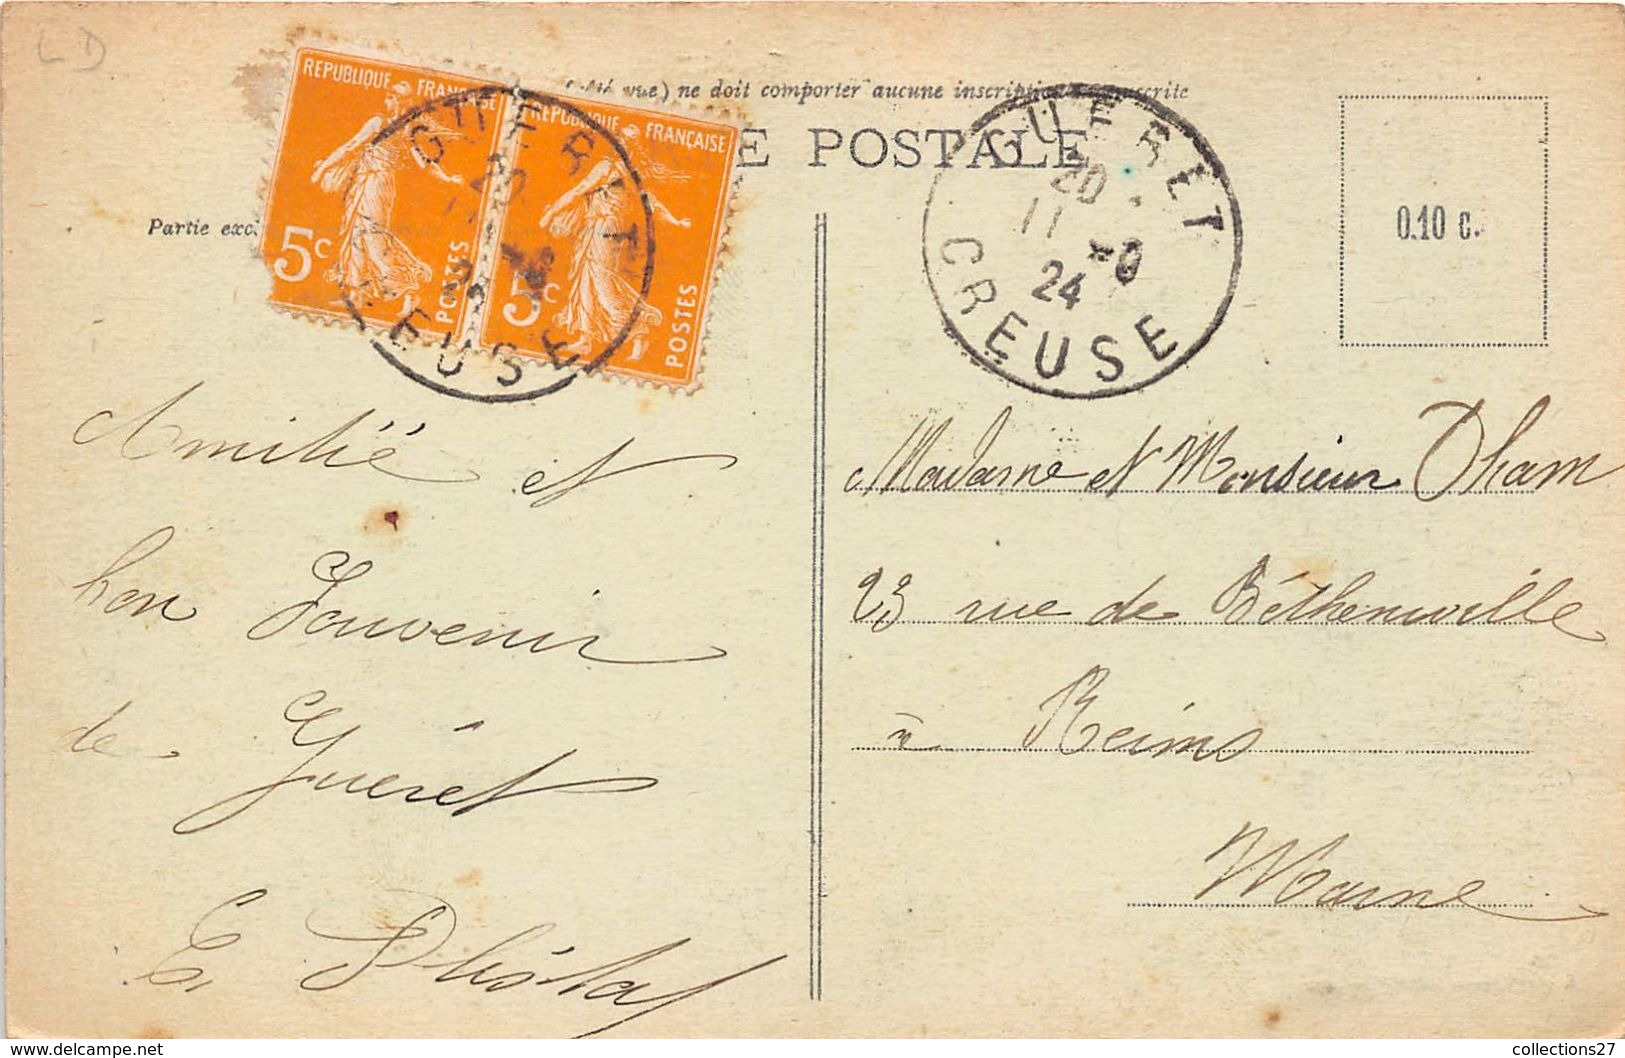 LD
vue) ne doit comporter aucune inscription
E POSTALE
Partie exc
REPUBLIQUE FRANÇAISE
5c
POSTES
REPUBLIQUE FRANÇAISE
5c
POSTES
GUERET
20
EUSE
GUERET
20
11 - 9
24
CREUSE
0.10 c.
Amitié et
bon Souvenir
de Guéret
E.
Madame et Monsieur Dham
23 rue de Bétheniville
à Reims
Marne
delcampe.net
collections27